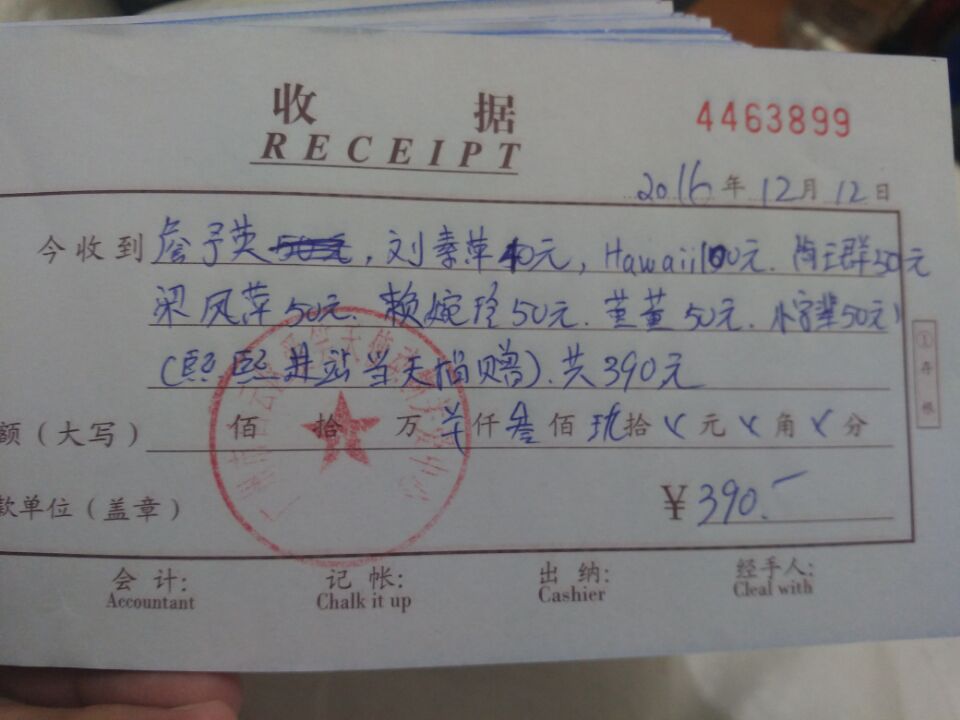 收 据
RECEIPT
4463899
2016年12月12日
今收到詹予英50元,刘素萍40元,Hawaii100元.陶三群50元
梁凤萍50元.赖婉玲50元.董董50元.50元)
(熙熙进站当天捐赠).共390元
额(大写) 佰 拾 万 仟叁佰玖拾 元 角 分
款单位(盖章) ¥390.
①存根
会 计: 记 帐: 出 纳: 经手人:
Accountant Chalk it up Cashier Cleal with